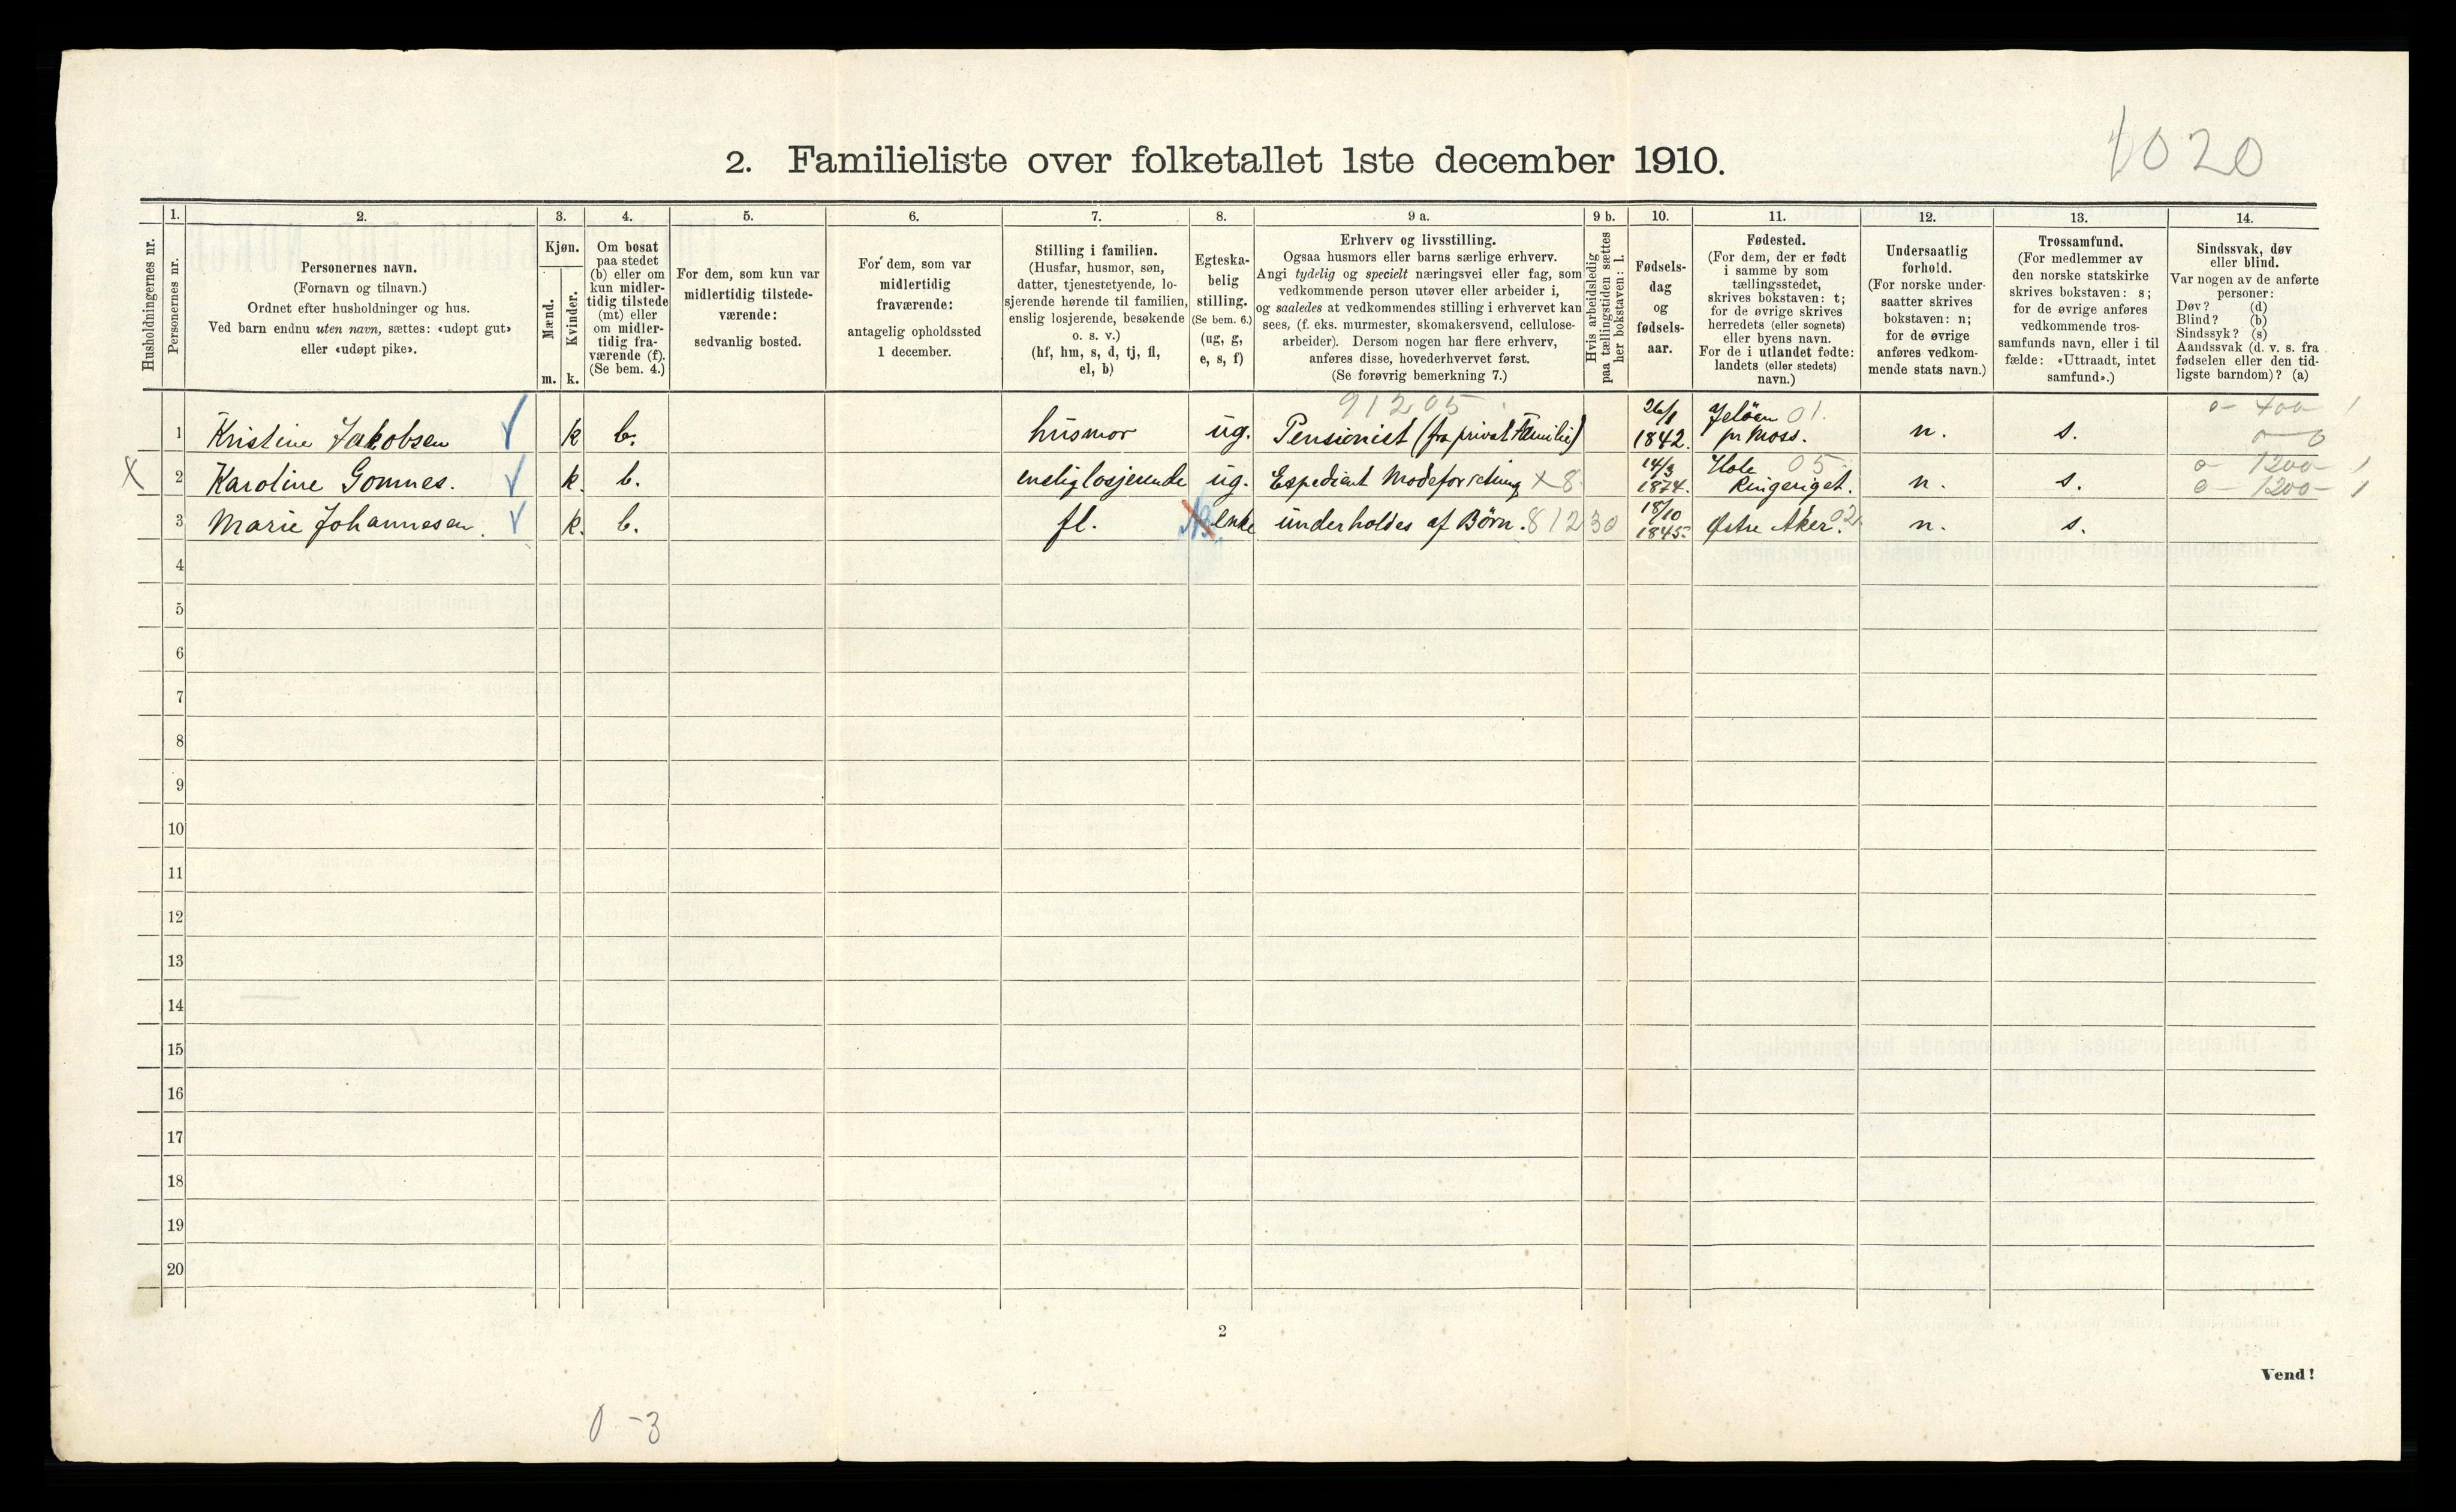 1020
2. Familieliste over folketallet 1ste december 1910.
Husholdningernes nr.
1.
Personernes nr.
2.
Personernes navn.
(Fornavn og tilnavn.)
Ordnet efter husholdninger og hus.
Ved barn endnu uten navn, sættes: «udøpt gut»
eller «udøpt pike».
3.
Kjøn.
Mænd.
Kvinder.
m. k.
4.
Om bosat
paa stedet
(b) eller om
kun midler-
tidig tilstede
(mt) eller
om midler-
tidig fra-
værende (f).
(Se bem. 4.)
5.
For dem, som kun var
midlertidig tilstede-
værende:
sedvanlig bosted.
6.
For dem, som var
midlertidig
fraværende:
antagelig opholdssted
1 december.
7.
Stilling i familien.
(Husfar, husmor, søn,
datter, tjenestetyende, lo-
sjerende hørende til familien,
enslig losjerende, besøkende
o. s. v.)
(hf, hm, s, d, tj, fl,
el, b)
8.
Egteska-
belig
stilling.
(Se bem. 6.)
(ug, g,
e, s, f)
9 a.
Erhverv og livsstilling.
Ogsaa husmors eller barns særlige erhverv.
Angi tydelig og specielt næringsvei eller fag, som
vedkommende person utøver eller arbeider i,
og saaledes at vedkommendes stilling i erhvervet kan
sees, (f. eks. murmester, skomakersvend, cellulose-
arbeider). Dersom nogen har flere erhverv,
anføres disse, hovederhvervet først.
(Se forøvrig bemerkning 7.)
9 b.
Hvis arbeidsledig
paa tællingstiden sættes
her bokstaven: l.
10.
Fødsels-
dag
og
fødsels-
aar.
11.
Fødested.
(For dem, der er født
i samme by som
tællingsstedet,
skrives bokstaven: t;
for de øvrige skrives
herredets (eller sognets)
eller byens navn.
For de i utlandet fødte:
landets (eller stedets)
navn.)
12.
Undersaatlig
forhold.
(For norske under-
saatter skrives
bokstaven: n;
for de øvrige
anføres vedkom-
mende stats navn.)
13.
Trossamfund.
(For medlemmer av
den norske statskirke
skrives bokstaven: s;
for de øvrige anføres
vedkommende tros-
samfunds navn, eller i til
fælde: «Uttraadt, intet
samfund».)
14.
Sindssvak, døv
eller blind.
Var nogen av de anførte
personer:
Døv? (d)
Blind? (b)
Sindssyk? (s)
Aandssvak (d. v. s. fra
fødselen eller den tid-
ligste barndom)? (a)
91205 26/1 Jeløen 01. 0- 400- 1
1 Kristine Jakobsen k b. husmor ug. Pensionist (fra privat Familie) 1842. pr Moss. n. s. 0-0
14/3 Hole 05 0- 1200- 1
X 2 Karoline Gomnes. k. b. enslig losjerende ug. Espedient Modeforretning X 8 1874. Ringeriget. n. s. 0- 1200- 1
18/10
3 Marie Johannesen. k. b. fl. enke underholdes af Børn. 812 30 1845 Østre Aker. 02 n. s.
4
5
6
7
8
9
10
11
12
13
14
15
16
17
18
19
20
2
Vend!
0-3